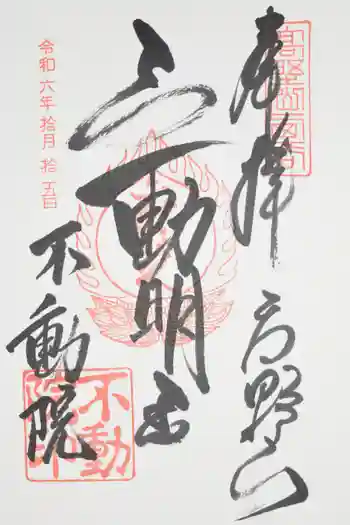 奉拝
高野山
不動明王
令和六年 拾月 拾五日
不動院
不動院印